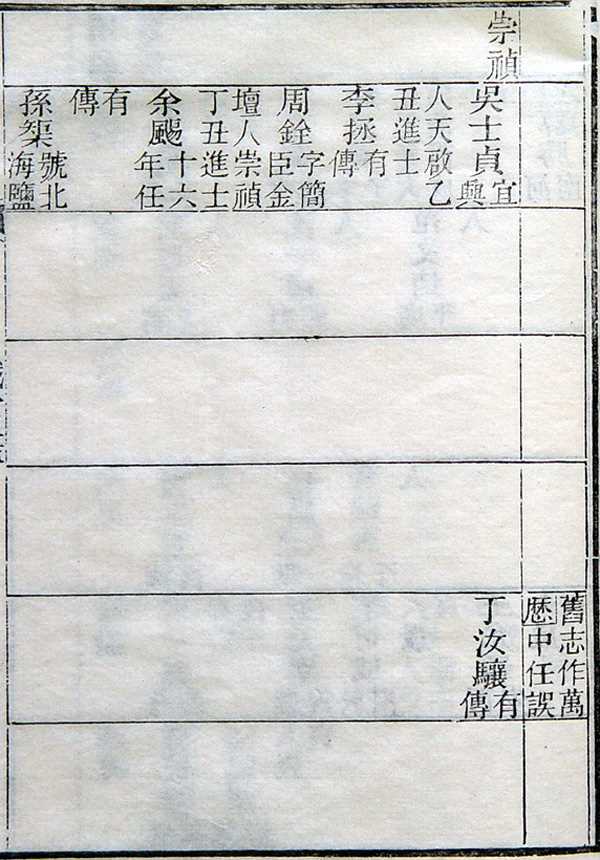 舊志作萬
厯中任誤
崇禎
吳士貞宜興
人天啟乙
丑進士
李拯有傳
周銓字簡臣金
壇人崇禎
丁丑進士
余颺十六年任
有傳
孫榘號北海鹽
丁汝驤有傳